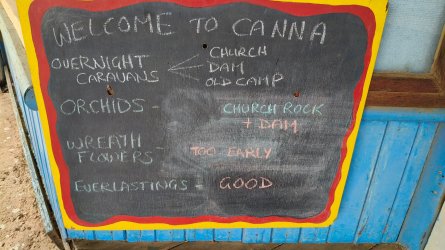 WELCOME TO CANNA
OVERNIGHT CARAVANS
CHURCH
DAM
OLD CAMP
ORCHIDS - CHURCH ROCK + DAM
WREATH FLOWERS - TOO EARLY
EVERLASTINGS = GOOD